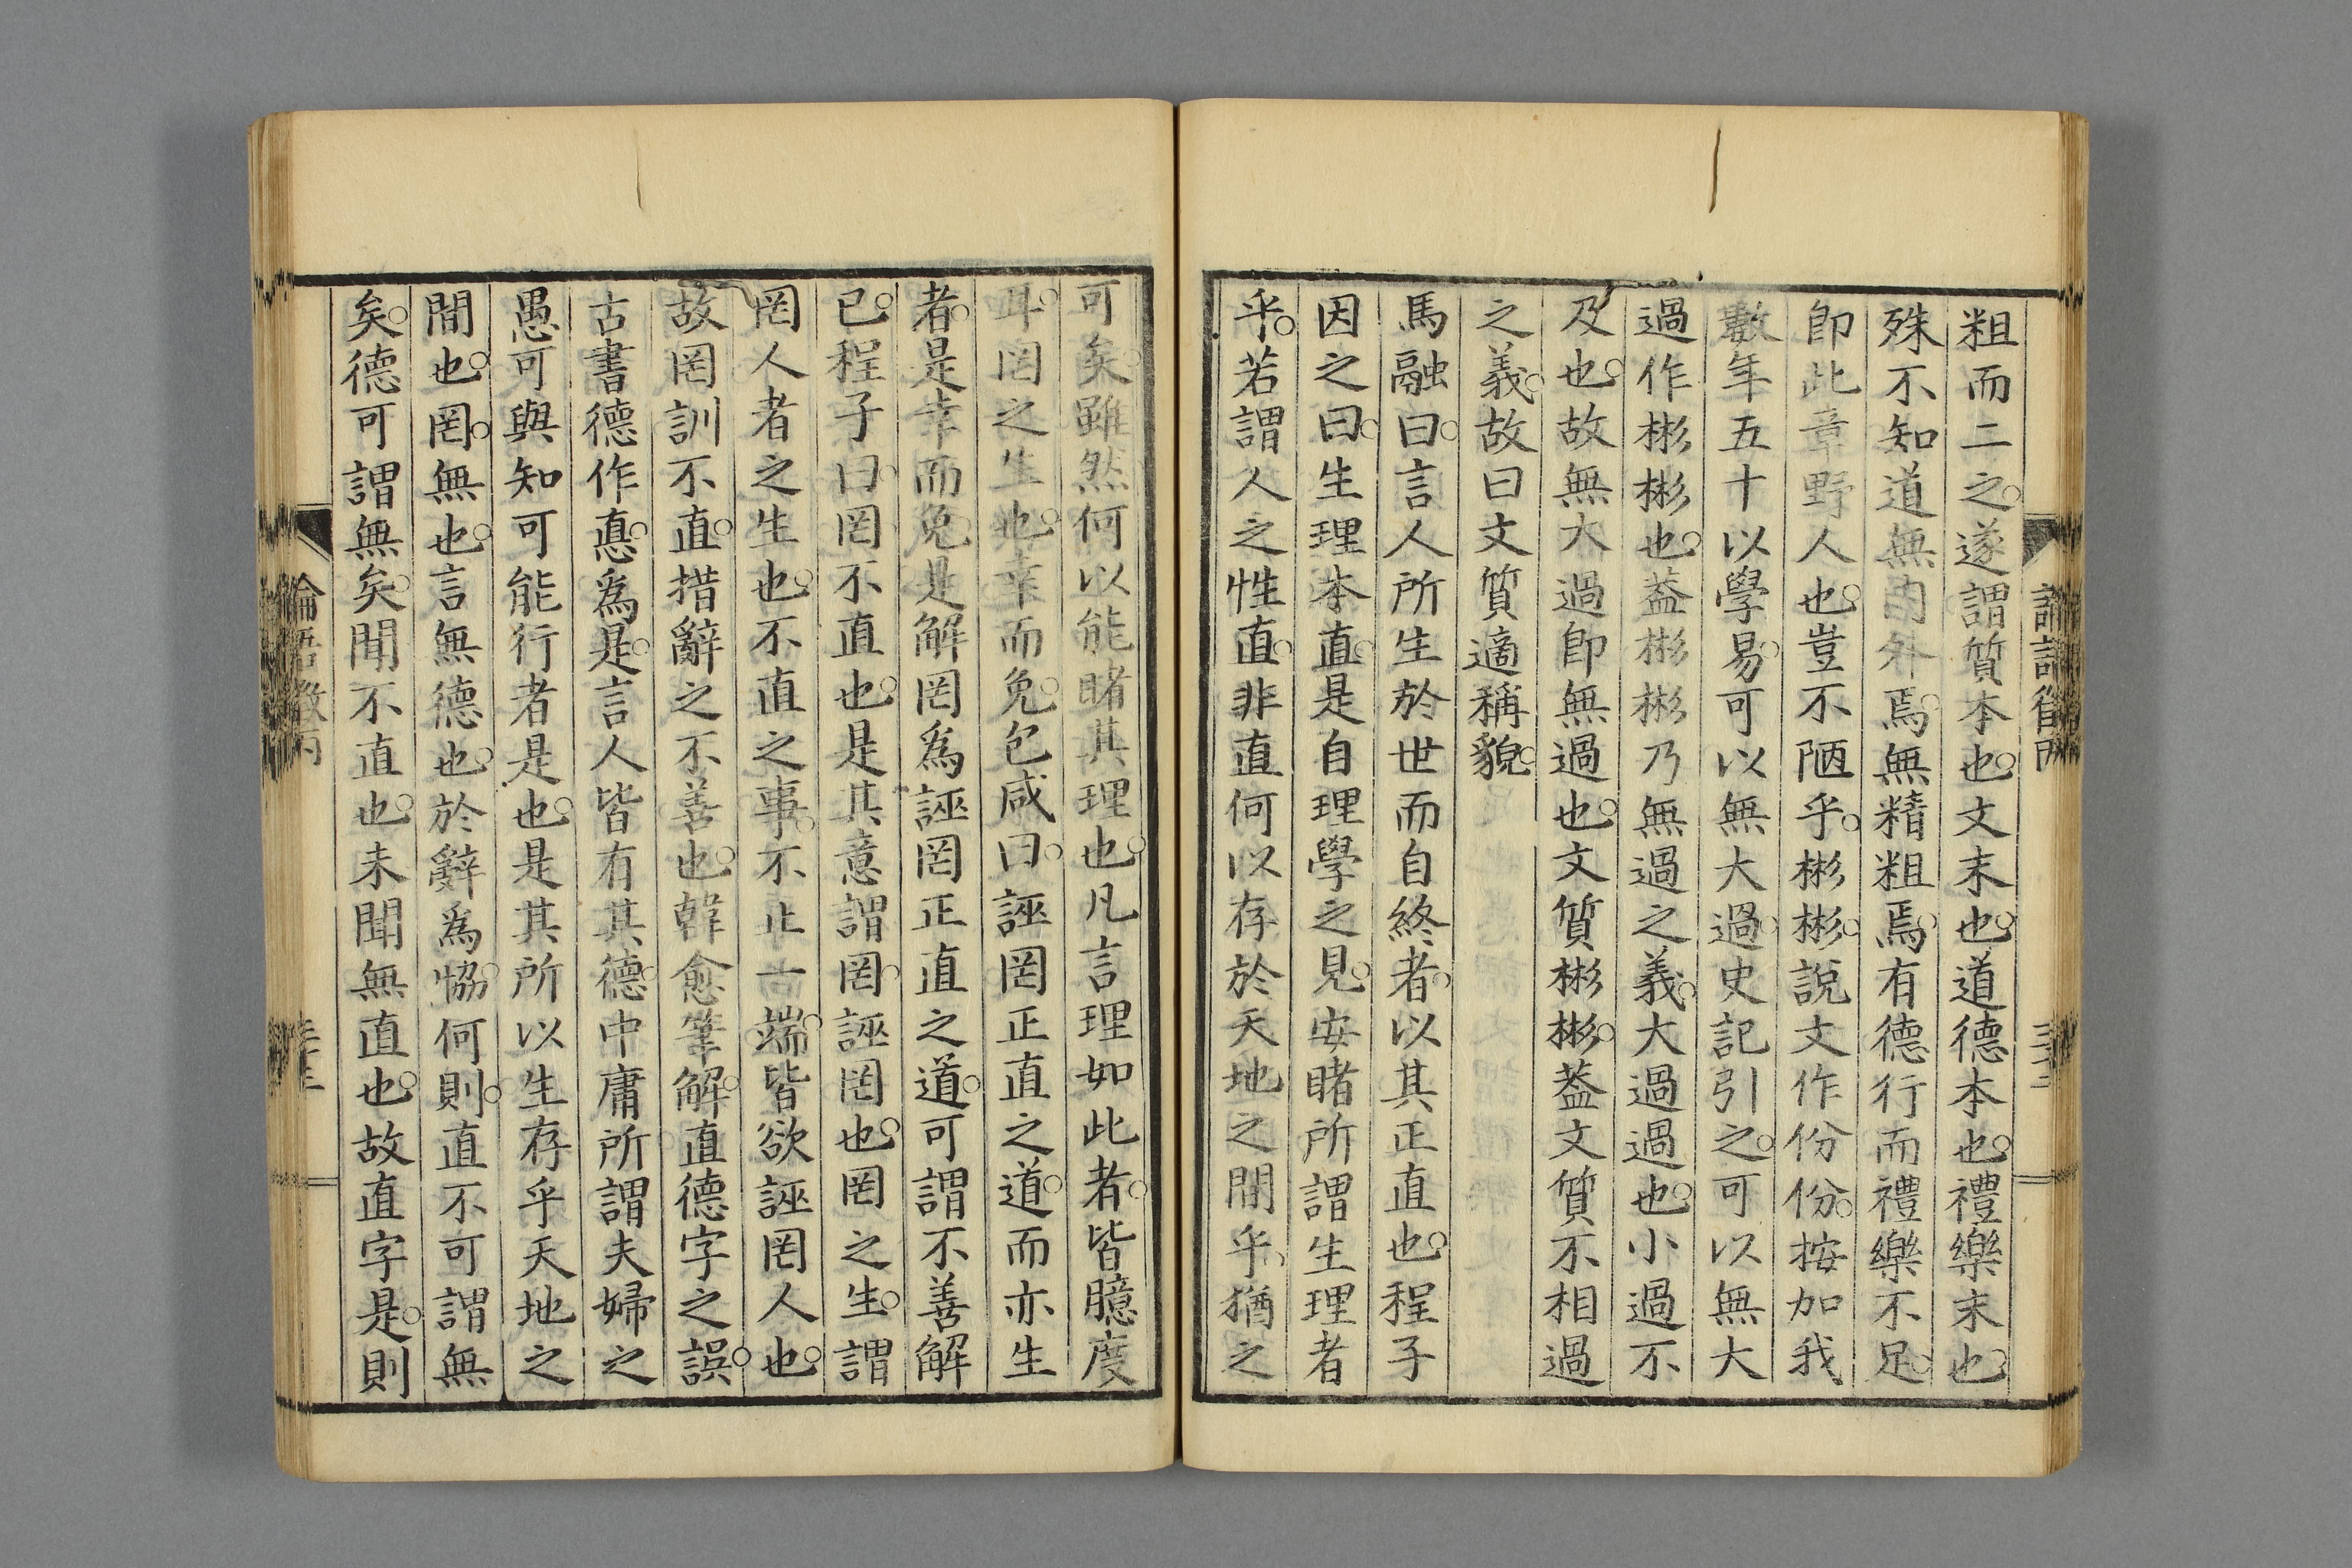 粗而二之遂謂質本也文末也道德本也禮樂末也
殊不知道無內外焉無精粗焉有德行而禮樂不足
卽此章野人也豈不陋乎彬彬說文作份份按加我
數年五十以學易可以無大過史記引之可以無大
過作彬彬也蓋彬彬乃無過之義大過過也小過不
及也故無大過卽無過也文質彬彬蓋文質不相過
之義故曰文質適稱貌
馬融曰言人所生於世而自終者以其正直也程子
因之曰生理本直是自理學之見安睹所謂生理者
乎若謂人之性直非直何以存於天地之間乎猶之
可矣雖然何以能睹其理也凡言理如此者皆臆度
耳罔之生也幸而免包咸曰誣罔正直之道而亦生
者是幸而免是解罔爲誣罔正直之道可謂不善解
已程子曰罔不直也是其意謂罔誣罔也罔之生謂
罔人者之生也不直之事不止一端皆欲誣罔人也
故罔訓不直措辭之不善也韓愈筆解直德字之誤
古書德作悳爲是言人皆有其德中庸所謂夫婦之
愚可與知可能行者是也是其所以生存乎天地之
間也罔無也言無德也於辭爲恊何則直不可謂無
矣德可謂無矣聞不直也未聞無直也故直字是則
論語徵丙